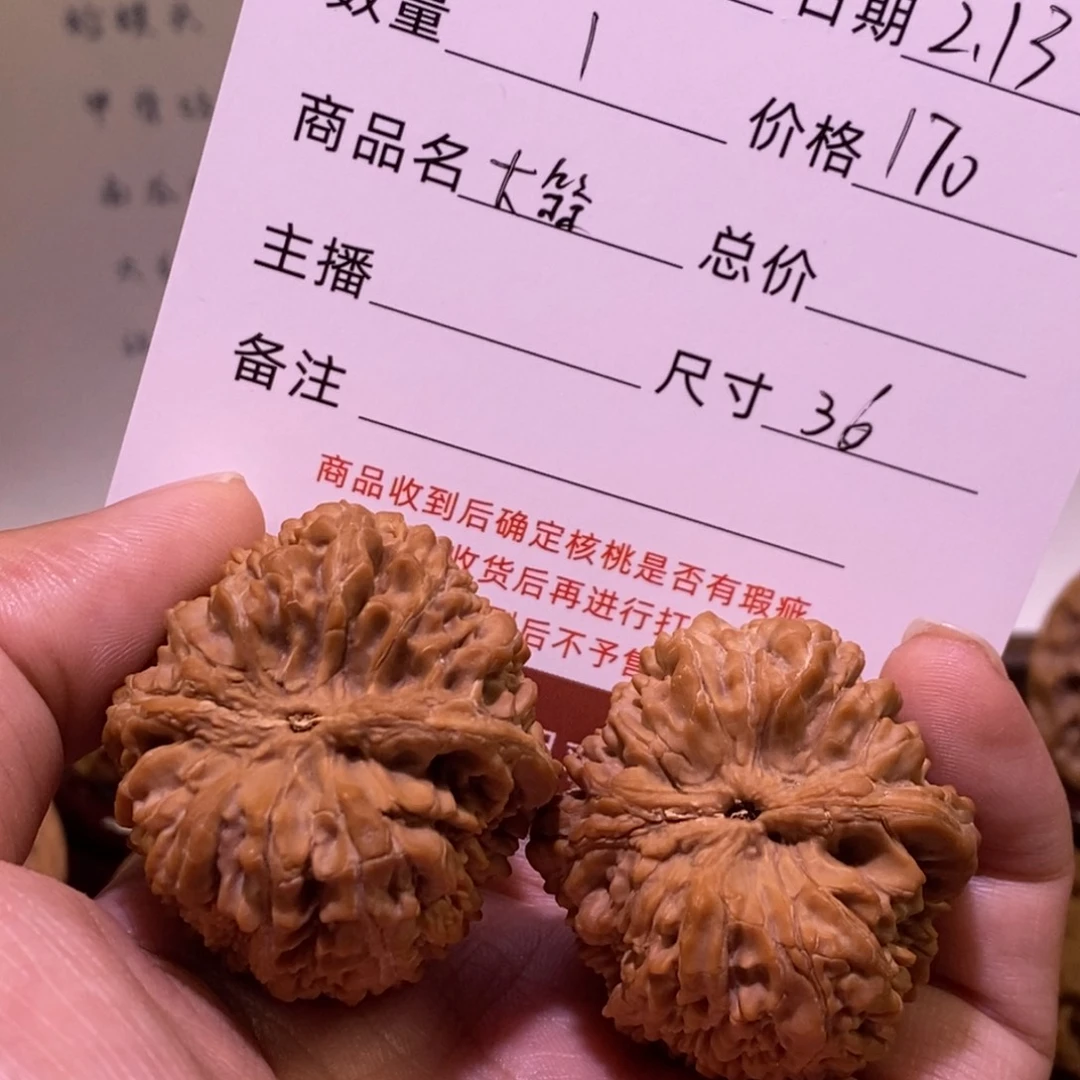 数量 1 日期 2.13
价格 170
商品名
总价
主播
尺寸 36
备注
商品收到后确定核桃是否有瑕疵
收货后再进行打
后不予售